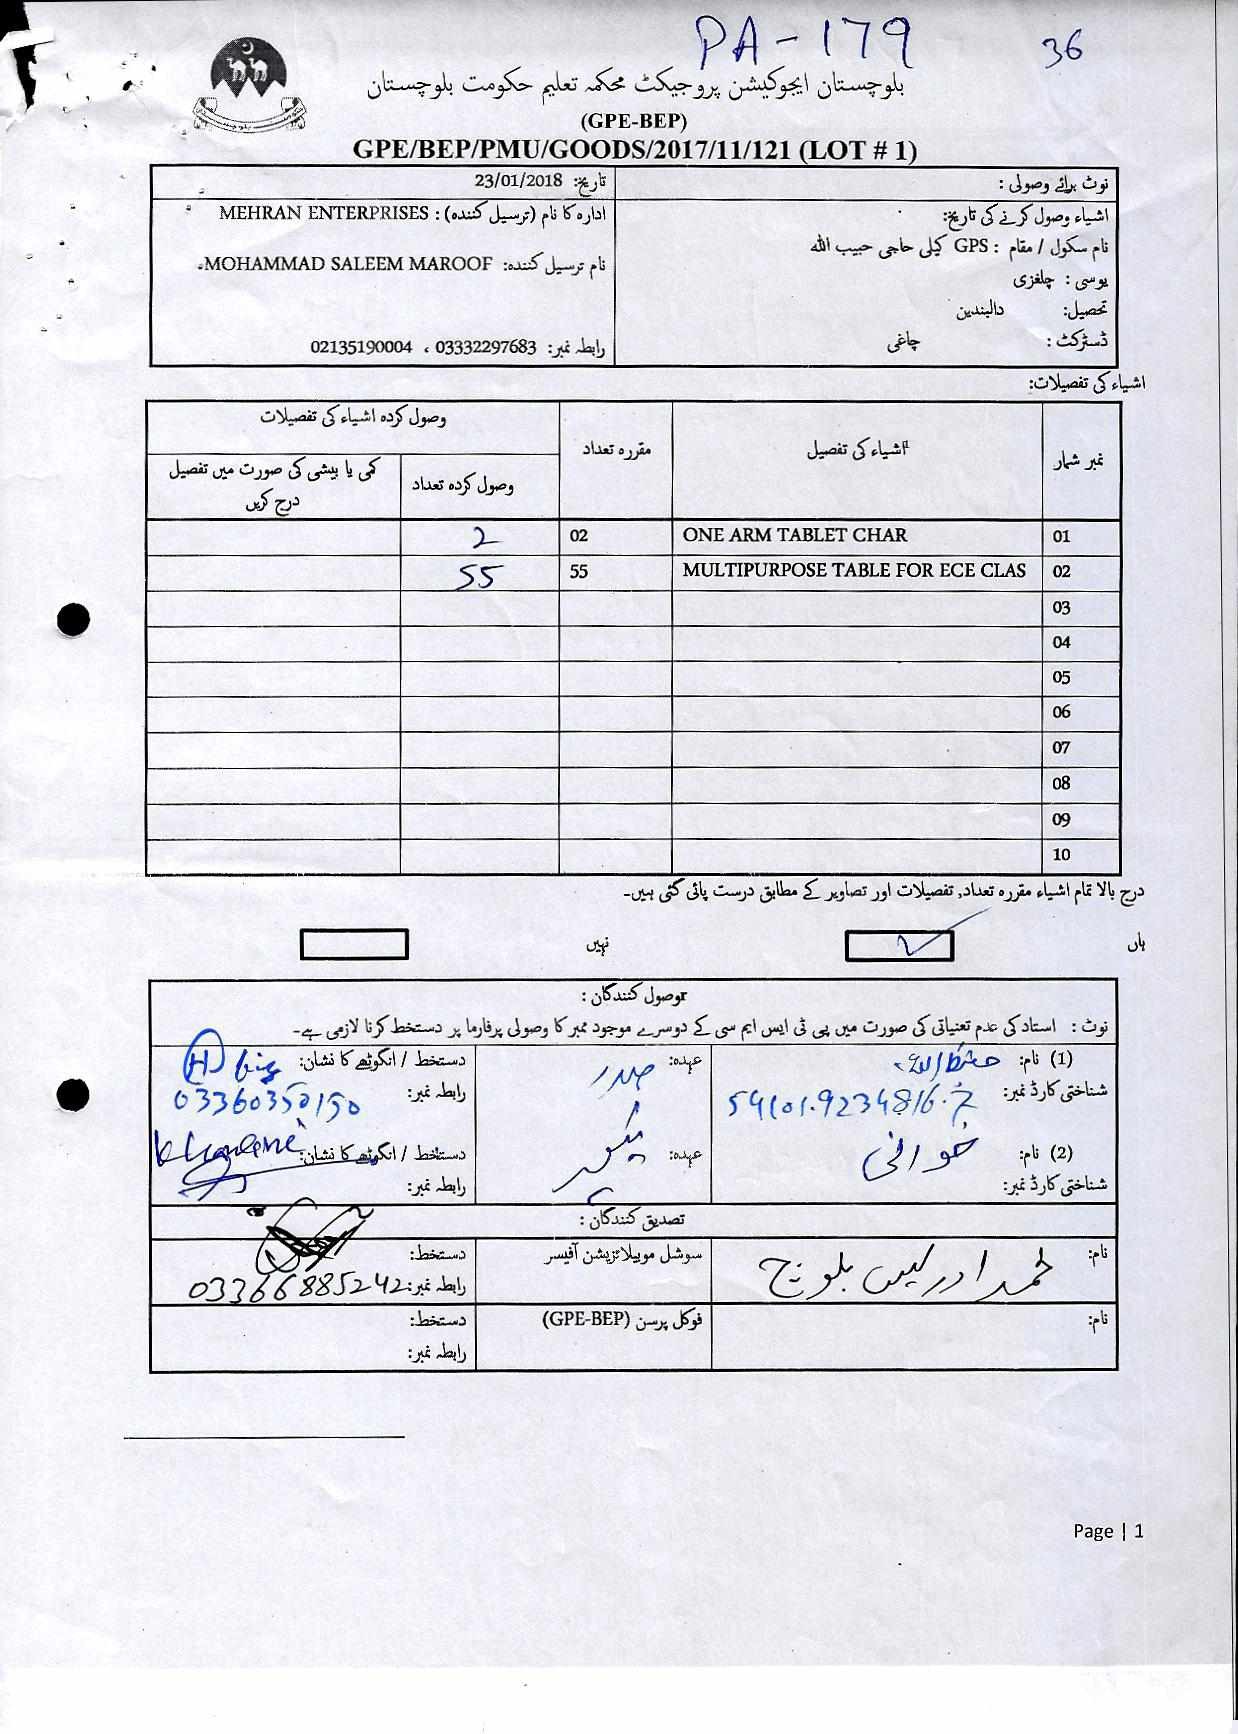 PA-179
36
بلوچستان ایجوکیشن پروجیکٹ محکمہ تعلیم حکومت بلوچستان
(GPE-BEP)
GPE/BEP/PMU/GOODS/2017/11/121 (LOT # 1)
نوٹ برائے وصولی :
تاریخ: 23/01/2018
اشیاء وصول کرنے کی تاریخ:
ادارہ کا نام (ترسیل کنندہ) : MEHRAN ENTERPRISES
نام سکول / مقام : GPS کیلی حاجی حبیب اللہ
نام ترسیل کنندہ: MOHAMMAD SALEEM MAROOF
یوسی : چلغزی
تحصیل: دالبندین
ڈسٹرکٹ : چاغی
رابطہ نمبر: 03332297683 ، 02135190004
اشیاء کی تفصیلات:
نمبر شمار
اشیاء کی تفصیل
مقررہ تعداد
وصول کردہ اشیاء کی تفصیلات
وصول کردہ تعداد
کمی یا بیشی کی صورت میں تفصیل
درج کریں
01 ONE ARM TABLET CHAR 02 2
02 MULTIPURPOSE TABLE FOR ECE CLAS 55 55
03
04
05
06
07
08
09
10
درج بالا تمام اشیاء مقررہ تعداد, تفصیلات اور تصاویر کے مطابق درست پائی گئی ہیں۔
ہاں
نہیں
وصول کنندگان :
نوٹ : استاد کی عدم تعنیاتی کی صورت میں پی ٹی ایس ایم سی کے دوسرے موجود ممبر کا وصولی پرفارما پر دستخط کرنا لازمی ہے۔
(1) نام:
عہدہ: صدر
دستخط / انگوٹھے کا نشان:
شناختی کارڈ نمبر:
رابطہ نمبر: 03360350150
(2) نام:
عہدہ:
دستخط / انگوٹھے کا نشان:
شناختی کارڈ نمبر:
رابطہ نمبر:
تصدیق کنندگان :
نام: محمد ادریس بلوچ
سوشل موبیلائزیشن آفیسر
دستخط:
رابطہ نمبر: 03366885242
نام:
فوکل پرسن (GPE-BEP)
دستخط:
رابطہ نمبر:
Page | 1